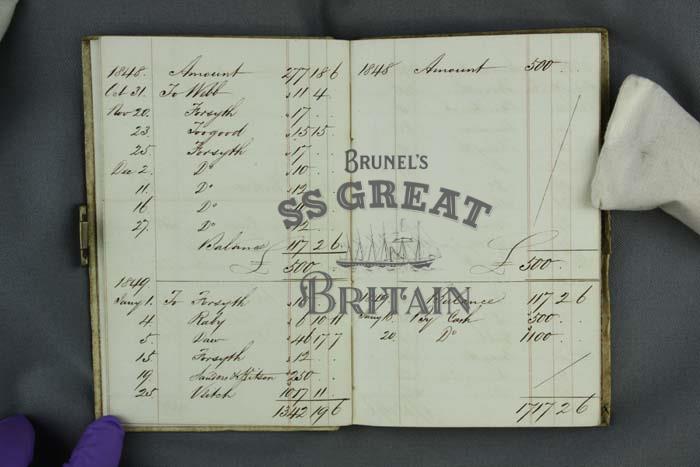 1848. Amount 277 18 6
Oct 31. To Webb " 11 4
Nov 20. Forsyth " 17 .
23. Toogood " 15 15
25. Forsyth " 17 .
Dec 2. Do " 10 .
11. Do " 12
16 Do
27. Do 12
Balance 117 2 6
£ 500
1849
Jany 1. To Forsyth " 10
4. Raby " 6 10 11
5. Daw " 46 17 7
15 Forsyth " 12
19. Sanders & Kitson 250
25 Veitch 1017 11
1342 19 6
1848 Amount 500
£ 500
1849 Balance 117 2 6
Jany By Cash 500
20. Do 1100
1717 2 6
BRUNEL'S
SS GREAT
BRITAIN